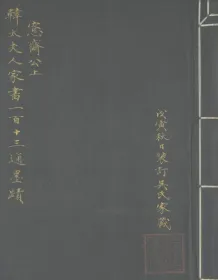 愙齋公上
韓太夫人家書一百十三通墨蹟
戊寅秋日裝訂吳氏家藏